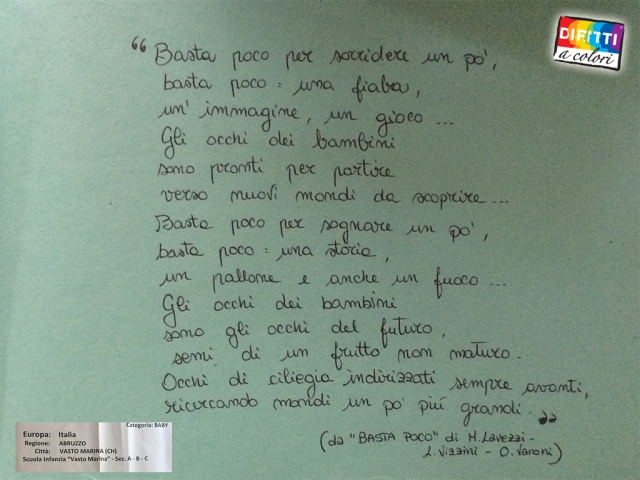 DIRITTI
a colori
“ Basta poco per sorridere un po',
basta poco: una fiaba,
un' immagine, un gioco ...
Gli occhi dei bambini
sono pronti per partire
verso nuovi mondi da scoprire ...
Basta poco per sognare un po',
basta poco: una storia,
un pallone e anche un fuoco ...
Gli occhi dei bambini
sono gli occhi del futuro,
semi di un frutto non maturo.
Occhi di ciliegia indirizzati sempre avanti,
ricercando mondi un po' più grandi. „
(da "BASTA POCO" di M. Lavezzi -
L. Vizzini - O. Varoni)
Categoria: BABY
Europa: Italia
Regione: ABRUZZO
Città: VASTO MARINA (CH)
Scuola Infanzia "Vasto Marina" - Sez. A - B - C